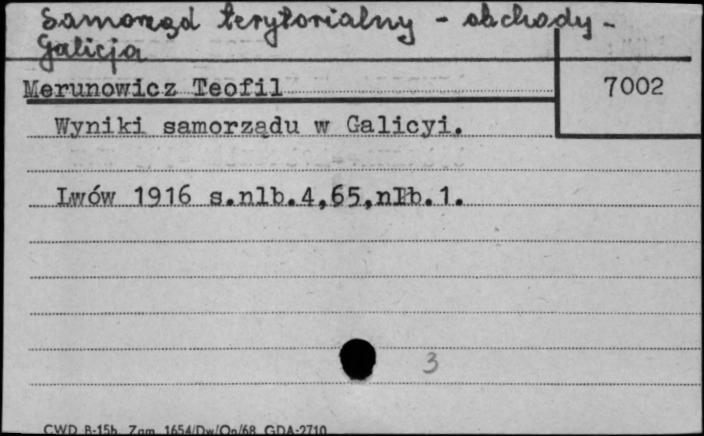 Samorząd terytorialny - obchody -
Galicja
Merunowicz Teofil
7002
Wyniki samorządu w Galicyi.
Lwów 1916 s.nlb.4,65,nlb.1.
3
CWD B-15b Zam. 1654/Dw/On/68 GDA-2710